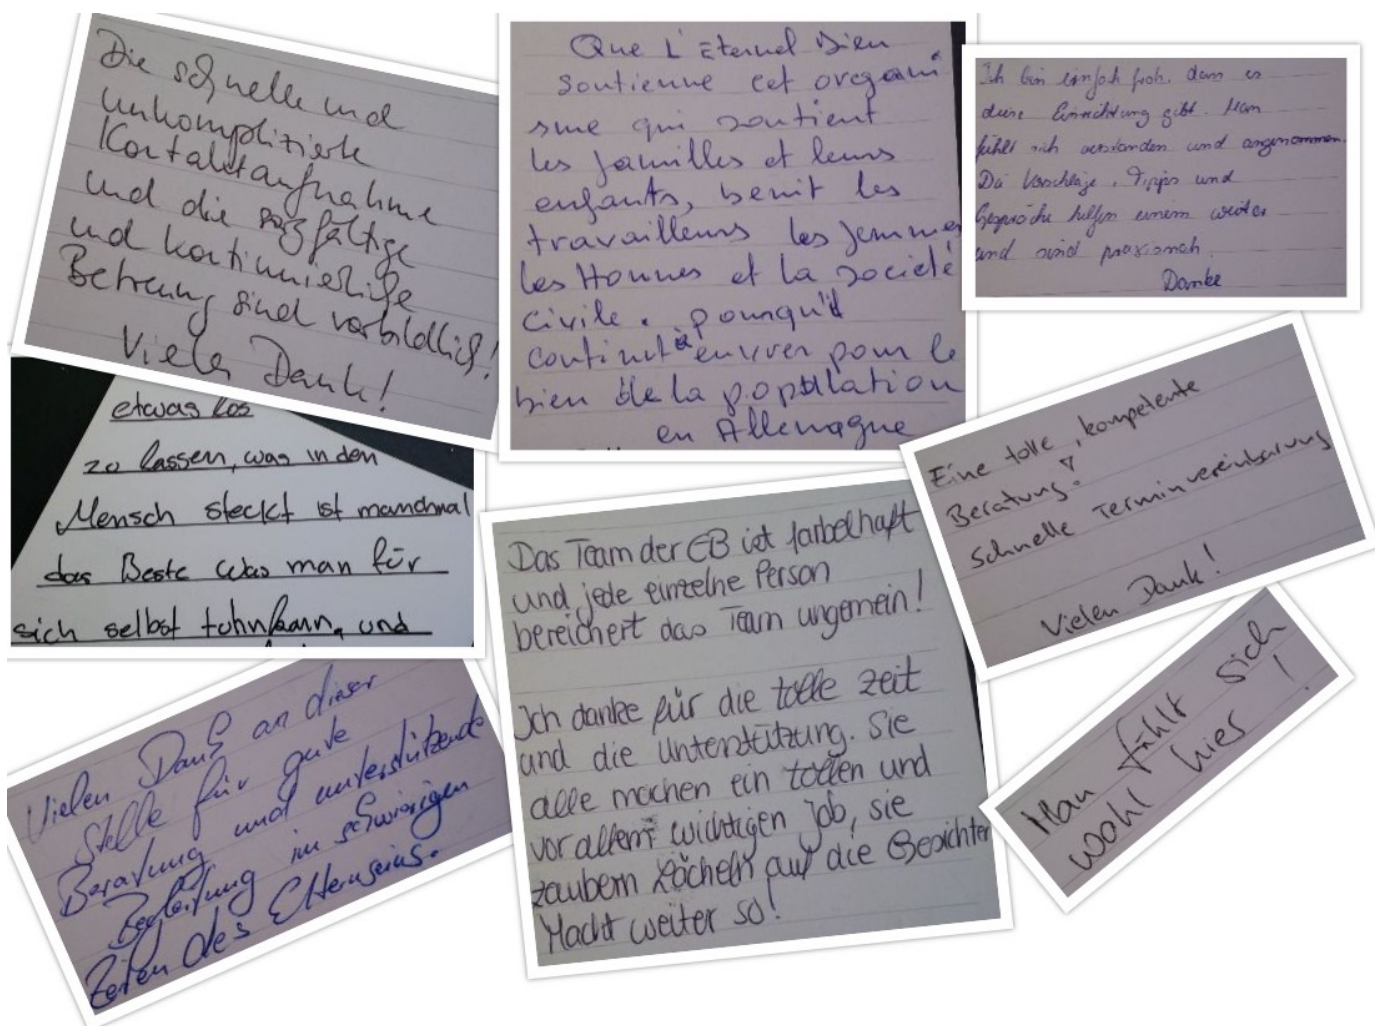 Die schnelle und
unkomplizierte
Kontaktaufnahme
und die sorgfältige
und kontinuierliche
Betreuung sind vorbildlich!
Vielen Dank!
Que L'Eternel Dieu
soutienne cet organi
sme qui soutient
les familles et leurs
enfants, benit les
travailleurs les femmes
les Hommes et la societé
civile. pourqu'il
continut à euvrer pour le
bien de la population
en Allemagne
Ich bin einfach froh, dass es
diese Einrichtung gibt. Man
fühlt sich verstanden und angenommen.
Die Vorschläge, Tipps und
Gespräche helfen einem weiter
und sind praxisnah.
Danke
etwas los
zu lassen, was in den
Mensch steckt ist manchmal
das Beste was man für
sich selbst tuhn kann, und
Eine tolle, kompetente
Beratung!
Schnelle Terminvereinbarung
Vielen Dank!
Das Team der EB ist farbelhaft
und jede einzelne Person
bereichert das Team ungemein!
Ich danke für die tolle Zeit
und die Unterstützung. Sie
alle machen ein tollen und
vor allem wichtigen Job, sie
zaubern Lächeln auf die Gesichter
Macht weiter so!
Man fühlt sich
wohl hier!
Vielen Dank an dieser
Stelle für gute
Beratung und unterstützende
Begleitung in schwierigen
Zeiten des Elternseins.